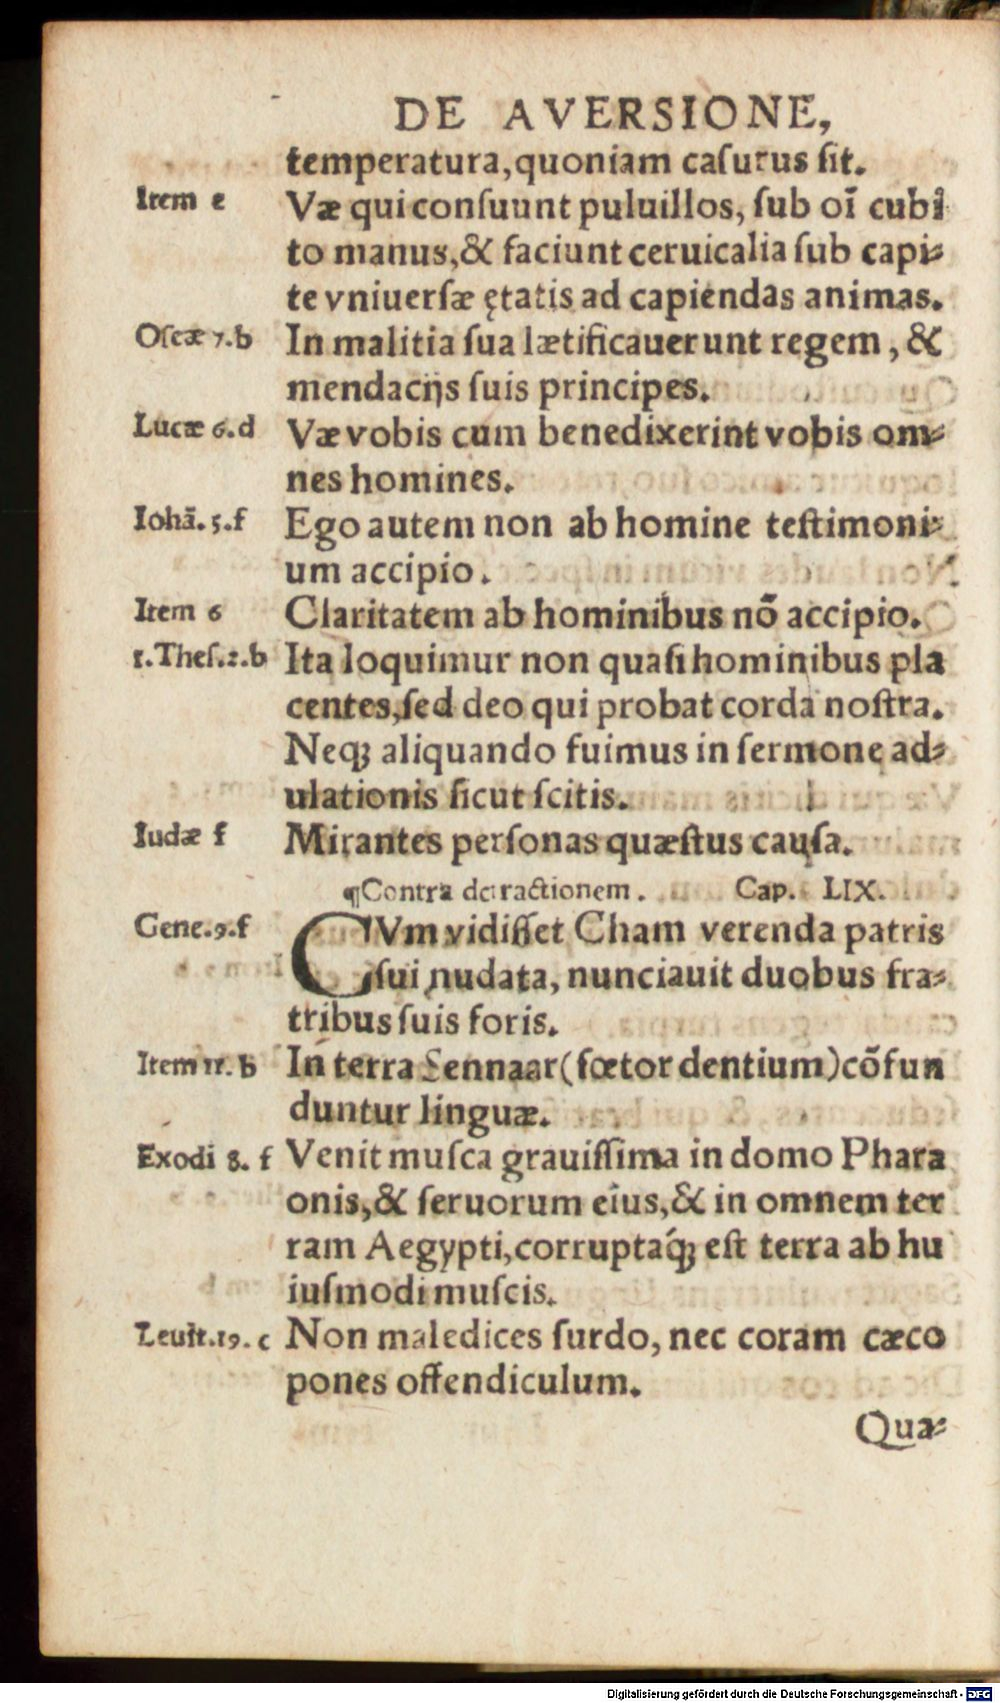 DE AVERSIONE,
temperatura, quoniam caſurus ſit.
Item e Væ qui conſuunt puluillos, ſub oī cubi
to manus, & faciunt ceruicalia ſub capi⸗
te vniuerſæ ętatis ad capiendas animas.
Oſeæ 7.b In malitia ſua lætificauerunt regem, &
mendacijs ſuis principes.
Lucæ 6.d Væ vobis cum benedixerint vobis om⸗
nes homines.
Iohā. 5.f Ego autem non ab homine teſtimoni⸗
um accipio.
Item 6 Claritatem ab hominibus nō accipio.
1.Theſ.2.b Ita loquimur non quaſi hominibus pla
centes, ſed deo qui probat corda noſtra.
Neqꝫ aliquando fuimus in ſermone ad⸗
ulationis ſicut ſcitis.
Iudæ f Mirantes perſonas quæſtus cauſa.
¶Contra detractionem. Cap. LIX.
Gene.9.f CVm vidiſſet Cham verenda patris
ſui nudata, nunciauit duobus fra⸗
tribus ſuis foris.
Item 11. b In terra Sennaar (fœtor dentium) cōfun
duntur linguæ.
Exodi 8. f Venit muſca grauiſſima in domo Phara
onis, & ſeruorum eius, & in omnem ter
ram Aegypti, corruptaq́ꝫ eſt terra ab hu
iuſmodi muſcis.
Leuit.19. c Non maledices ſurdo, nec coram cæco
pones offendiculum.
Quæ⸗
Digitalisierung gefördert durch die Deutsche Forschungsgemeinschaft - DFG